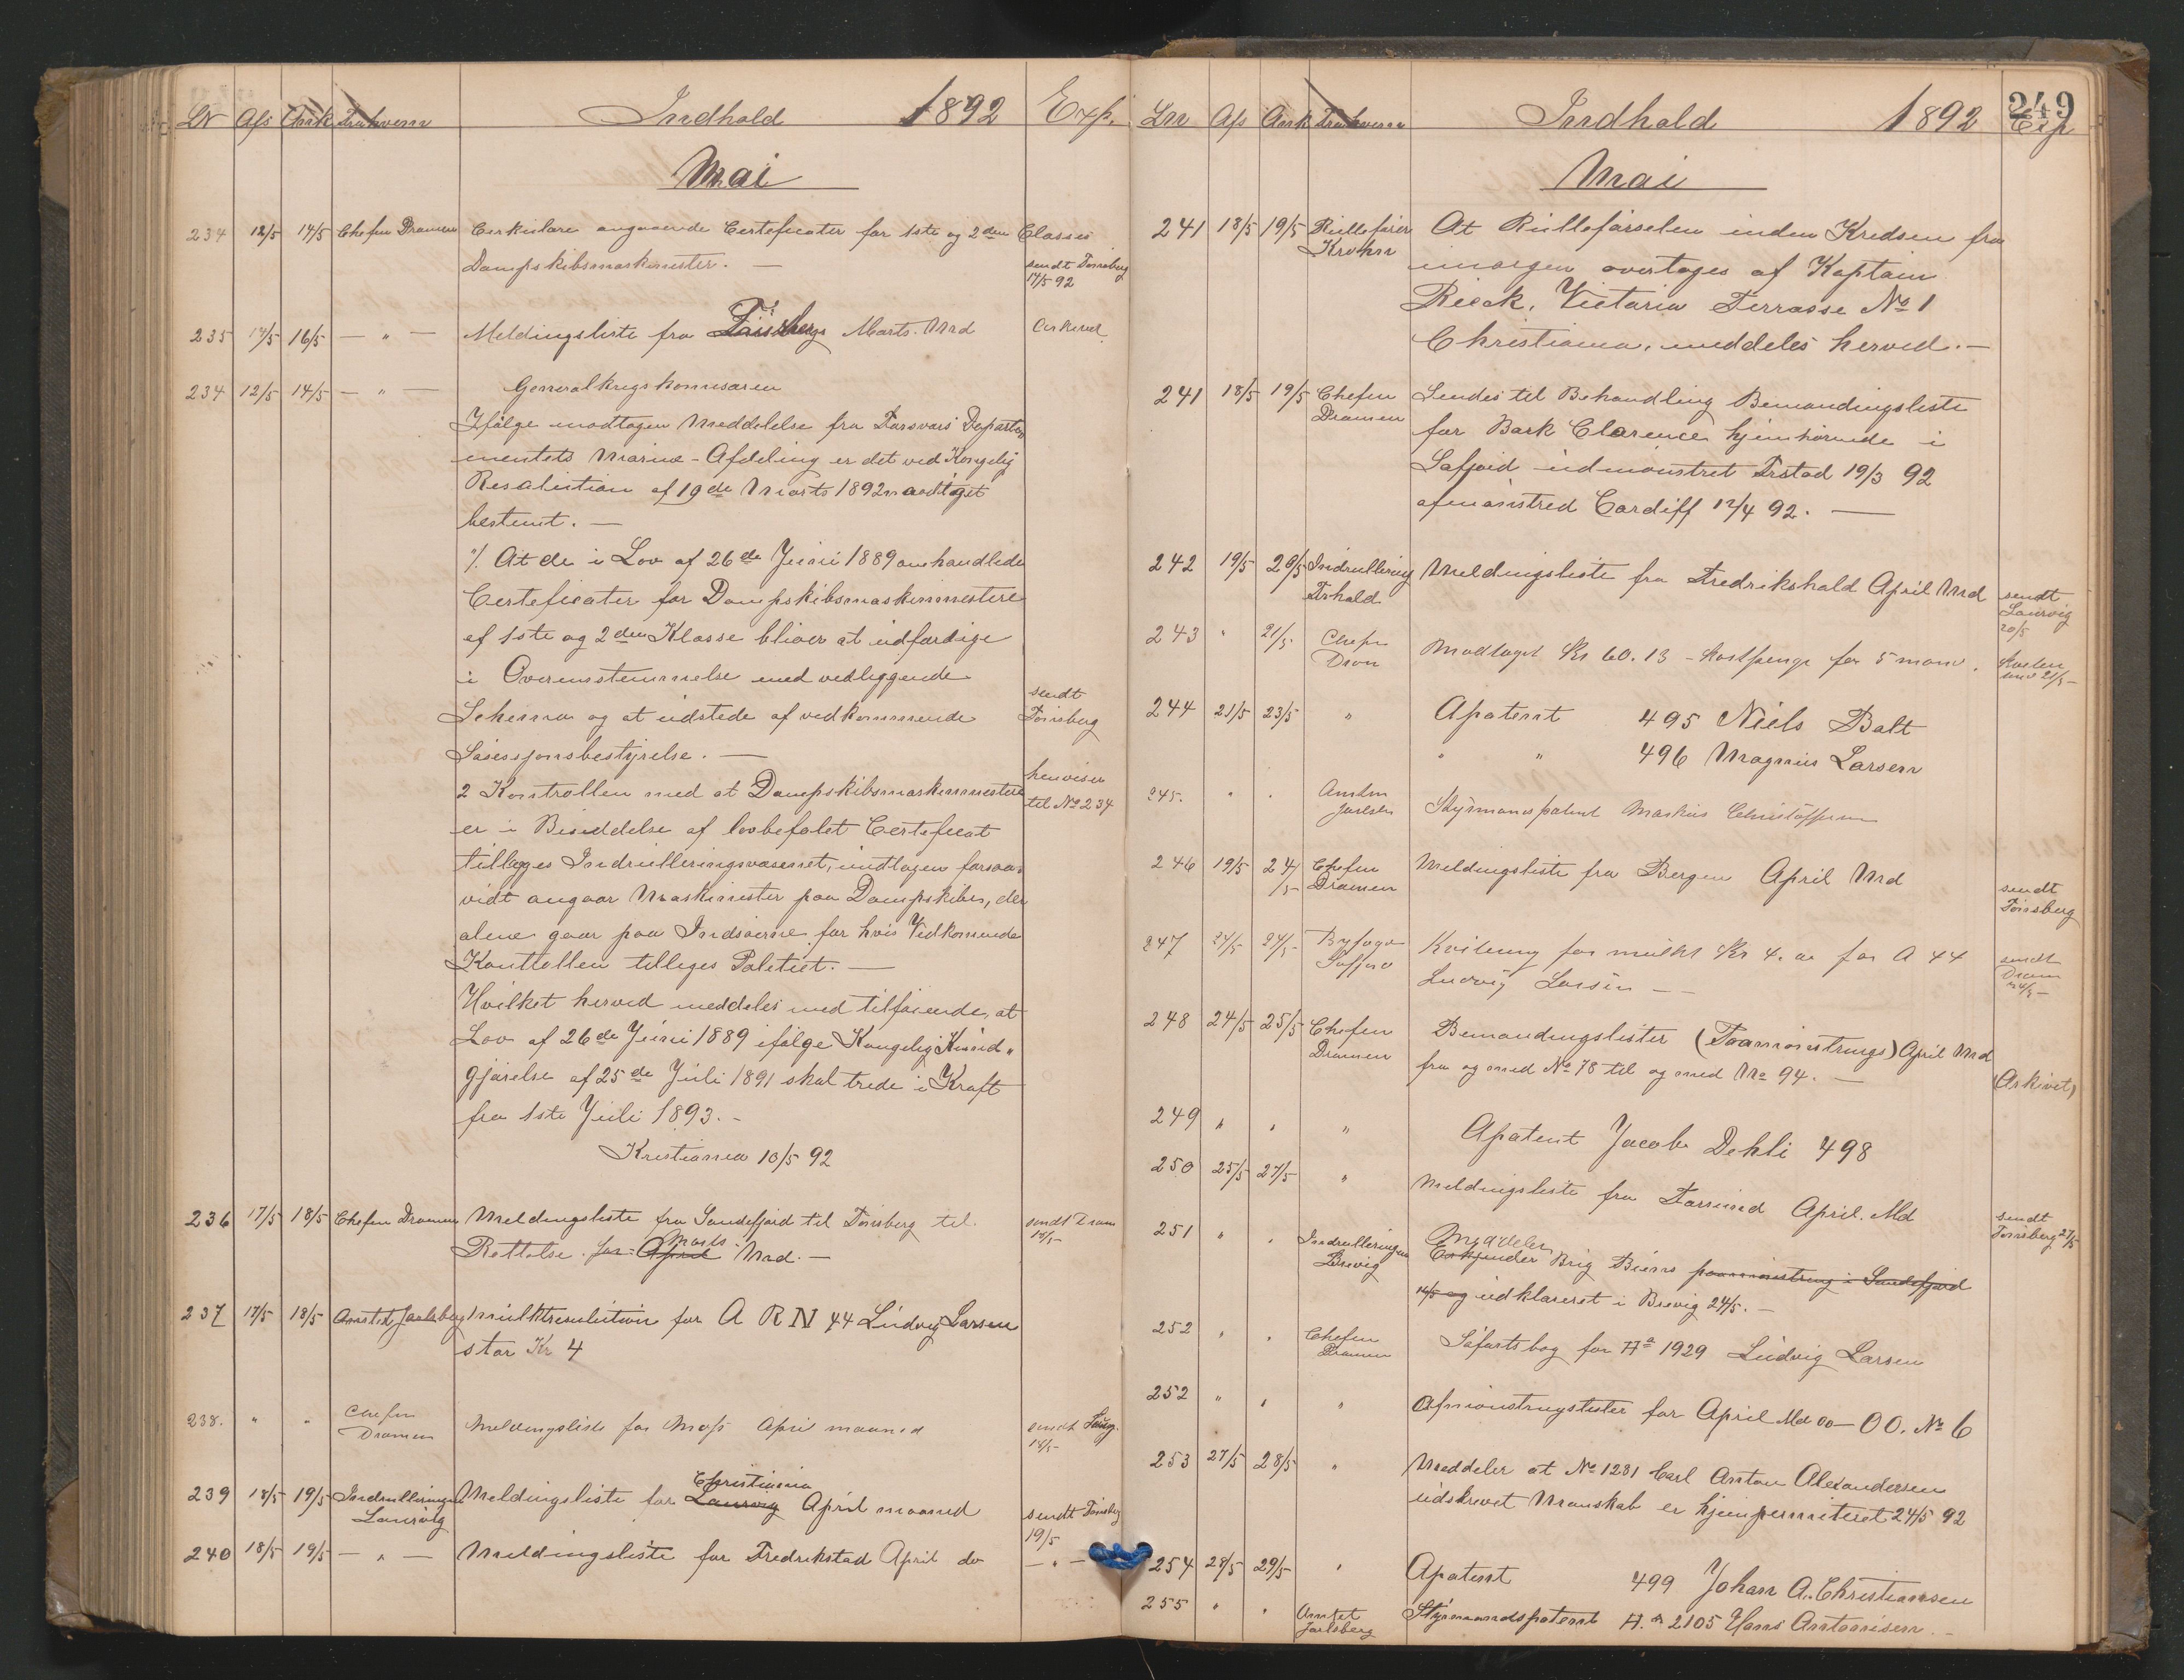 Lr Afs Ank Fruhvem Indhold 1892 Exp.
Mai
234 12/5 14/5 Chefen Dramen Cirkulære angaaende Certeficater for 1ste og 2den Classes
Dampskibsmaskinister. — sendt Tønsberg
14/5 92
235 14/5 16/5 — " — Meldingsliste fra Marts Md Arkivet
234 12/5 14/5 — " — Generalkrigskommisæren
Ifølge modtagen Meddelelse fra Forsvars Departe
mentets Marine-Afdeling er det ved Kongelig
Resolution af 19de Marts 1892
bestemt. —
1/. At de i Lov af 26de Juni 1889 omhandlede
Certeficater for Dampskibsmaskinmestere
af 1ste og 2den Klasse bliver at udfærdige
i Overensstemmelse med vedliggende
Schema og at udstede af vedkommende sendt
Tønsberg
Søsessjonsbestyrelse. —
2 Kontrollen med at Dampskibsmaskinmestere henvisen
til No 234
er i Besiddelse af lovbefalet Certeficat
tillægges Indrulleringsvæsenet, undtagen forsaa-
vidt angaar Maskinister paa Dampskibe, der
alene gaar paa Indsøerne for hvis Vedkommende
Konttollen tilleges Politiet. —
Hvilket herved meddeles med tilføiende, at
Lov af 26de Juni 1889 ifølge Kongelig Kund-
gjørelse af 25de Juli 1891 skal træde i Kraft
fra 1ste Juli 1893. -
Kristiania 10/5 92
236 17/5 18/5 Chefen Dramen Meldingsliste fra Sandefjord til Tønsberg til sendt Dram
18/5
Marts
Rettelse. for April Md. —
237 17/5 18/5 Amtet Jarlsberg Mulktresulution for A R N 44 Ludvig Larsen
stor Kr 4
238. " " Chefen
Dramen Meldingsliste for Moss April maaned sendt
18/5
Christiania
239 18/5 19/5 Indrulleringen
Laurvig Meldingsliste for Laurvig April maaned sendt Tønsberg
19/5
240 18/5 19/5 — " — Meldingsliste for Fredrikstad April do — " —
249
Lnr Afs Ank Fruhvem Indhold 1892 Exp
Mai
241 18/5 19/5 Rulleførér
Krohn At Rulleførselen inden Kredsen fra
imorgen overtages af Kaptain
Rieck, Victoria Terrasse No 1
Christiania, meddeles herved. —
241 18/5 19/5 Chefen
Dramen Sendes til Behandling Bemandingsliste
for Bark Clarence hjemhørende i
Safjord udmønstret Frstad 19/3 92
afmønstred Cardiff 12/4 92. —
242 19/5 20/5 Indrullering
Frhald Meldingsliste fra Fredrikshald April Md sendt
Laurvig
20/5
243 " 21/5 Chefen
Dram Modtaget Kr 60.13 - Kostpenge for 5 mand.
21/5 -
244 21/5 23/5 " Apatent 495 Niels Balt
" " 496 Magnus Larsen
245. " " Amtm
Jarlsb Styrmandspatent Markus Christoffersen
246 19/5 24/5 Chefen
Dramen Meldingsliste fra Bergen April Md sendt
Tønsberg
247 24/5 24/5 Byfogd
Safjord Kvitering for mulkt Kr 4. for A 44 sendt
Dram
24/5 -
Ludvig Larsen —
248 24/5 25/5 Chefen
Dramen Bemandingslister (Paamønstrings) April Md
fra og med No 78 til og med No 94. — (Arkivet)
249 " " " Apatent Jacob Dehli 498
250 25/5 27/5 " Meldingsliste fra Farsund April. Md sendt
Tønsberg 27/5
251 " " Indrulleringen
Brevig Anmelder
Brig paamønstring i Sandefjord
14/5 og udklareret i Brevig 24/5. —
252 " " Chefen
Dramen Søfartsbog for Aa 1929 Ludvig Larsen
252 " " " Afmønstrngslister for April Md 00 — 00. No 6
253 27/5 28/5 " Meddeler at No 1281 Carl Anton Alexandersen
udskrevet Manskab er hjempermiteret 24/5 92
254 28/5 29/5 " Apatent 499 Johan A. Christiansen
255 " " Amtet
Jarlsberg Styrmandspatent A. a 2105 Hans Antonisen. -